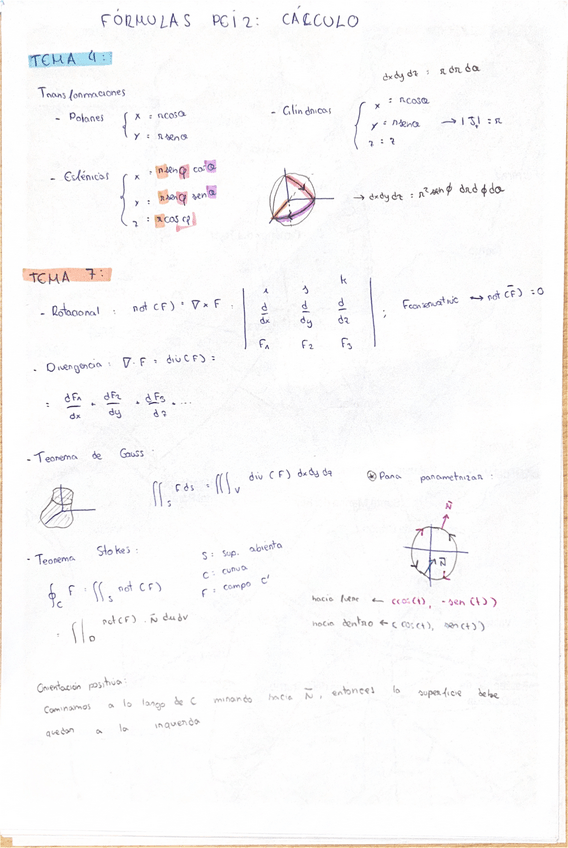 FÓRMULAS PEI 2: CÁLCULO
TEMA 4:
dxdydz : r dr dθ
Transformaciones
- Polares { x = rcosθ
y = rsenθ
- Cilíndricas { x = rcosθ
y = rsenθ → |J| = r
z = z
- Esféricas { x = rsenφ cosθ
y = rsenφ senθ
z = rcosφ
→ dxdydz = r² senφ drdφdθ
TEMA 7:
- Rotacional : rot (F) = ∇ x F =
i j k
d/dx d/dy d/dz
F₁ F₂ F₃
; F conservativo ↔ rot (F̄) = 0
- Divergencia : ∇ · F = div(F) =
= dF₁/dx + dF₂/dy + dF₃/dz + ...
- Teorema de Gauss :
∬_S F ds = ∭_V div (F) dxdydz
⊛ Para parametrizar :
N̄
N̄
- Teorema Stokes :
S : sup. abierta
C : curva
F : campo C'
∮_C F = ∬_S rot (F)
= ∬_D rot(F) · N̄ dudv
hacia fuera ← (cos(t), -sen(t))
hacia dentro ← (cos(t), sen(t))
Orientación positiva :
Caminamos a lo largo de C mirando hacia N̄, entonces la superficie debe
quedar a la izquierda